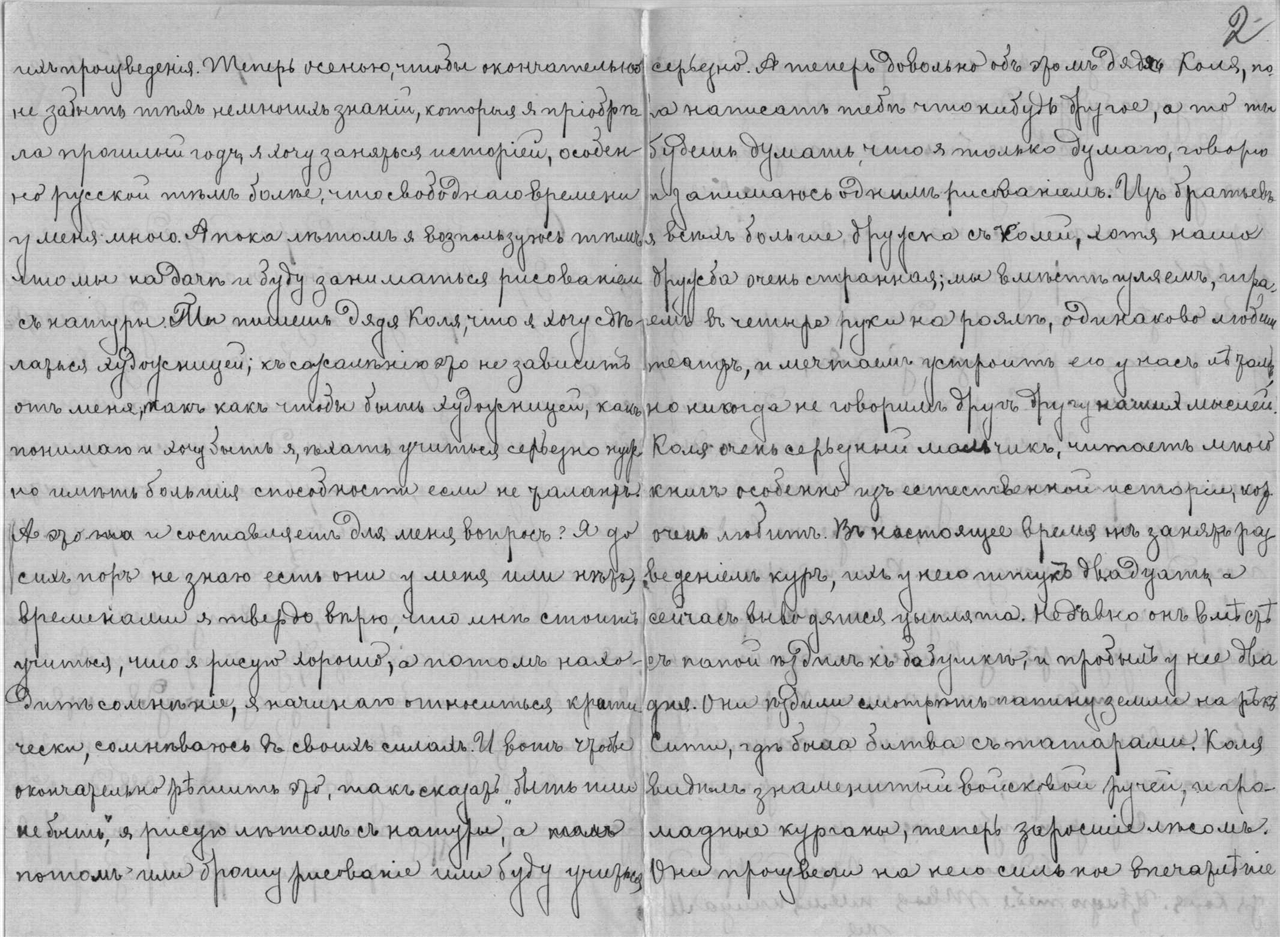 2
ихъ произведенiя. Теперь осенью, чтобы окончательно
не забыть тѣхъ немногихъ знанiй, которыя я прiобрѣ-
ла прошлый годъ, я хочу заняться исторiей, особен-
но русской тѣмъ болѣе, что свободнаго времени
у меня много. А пока лѣтомъ я возпользуюсь тѣмъ
что мы на дачѣ и буду заниматься рисованiем
съ натуры. Ты пишешь дядя Коля, что я хочу сдѣ-
латься художницей; къ сожалѣнiю это не зависитъ
отъ меня, такъ какъ чтобы быть художницей, какъ
понимаю и хочу быть я, ѣхать учиться серьезно нуж-
но имѣть большiя способности если не талантъ.
А это и составляетъ для меня вопросъ? Я до
сихъ поръ не знаю есть они у меня или нѣтъ,
временами я твердо вѣрю, что мнѣ стоитъ
учиться, что я рисую хорошо, а потомъ нахо-
дитъ сомнѣнiе, я начинаю относиться крити
чески, сомнѣваюсь въ своихъ силахъ. И вотъ чтобы
окончательно рѣшить это, такъ сказать „быть или
не быть", я рисую лѣтомъ съ натуры, а
потомъ или брошу рисованiе или буду учиться
серьезно. А теперь довольно объ этомъ дядя Коля, по-
ра написать тебѣ что нибудь другое, а то ты
будешь думать, что я только думаю, говорю
и занимаюсь однимъ рисованiемъ. Изъ братьевъ
я всѣхъ больше дружна съ Колей, хотя наша
дружба очень странная; мы вмѣстѣ гуляемъ, игра-
емъ въ четыре руки на роялѣ, одинаково любим
театръ, и мечтаемъ устроить его у насъ лѣтомъ,
но никогда не говоримъ другъ другу нашихъ мыслей.
Коля очень серьезный мальчикъ, читаетъ много
книгъ особенно изъ естественной исторiи, кот.
очень любитъ. Въ настоящее время онъ занятъ раз
веденiемъ куръ, ихъ у него штукъ двадцать, а
сейчасъ выводятся цыплята. Недавно онъ вмѣстѣ
съ папой ѣздилъ къ бабушкѣ, и пробылъ у нее два
дня. Они ѣздили смотрѣть папину землю на рѣкѣ
Сити, гдѣ была битва съ татарами. Коля
видѣлъ знаменитый войсковой ручей, и гро-
мадные курганы, теперь заросшiе лѣсомъ.
Они произвели на него сильное впечатлѣнiе